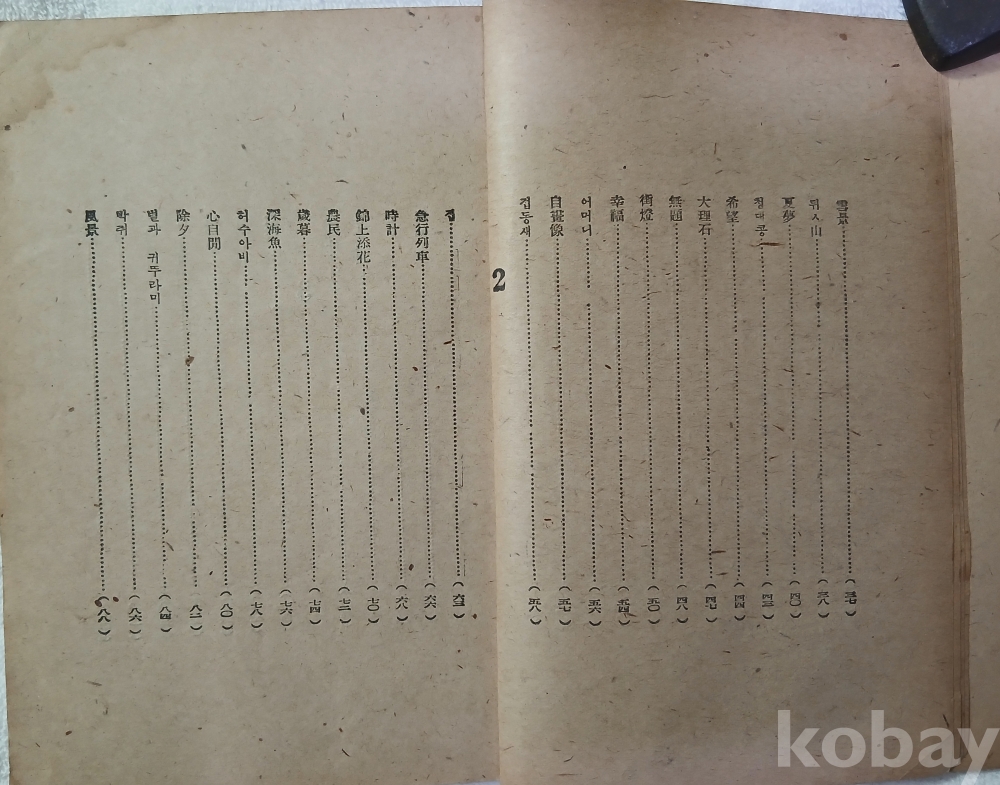 雪景 (三七)
뒤ㅅ山 (三八)
夏夢 (四〇)
청대콩
希望 (四四)
大理石 (四七)
無題 (四八)
街燈 (五〇)
幸福 (五四)
어머니 (五六)
自畫像 (五七)
접동새 (五八)
2
집
急行列車 (六六)
時計 (六八)
錦上添花 (七〇)
農民 (七二)
歲暮 (七四)
深海魚 (七六)
허수아비 (七八)
心自閒 (八〇)
除夕 (八二)
별과 귀뚜라미 (八四)
박쥐 (八六)
風景 (八八)
kobay